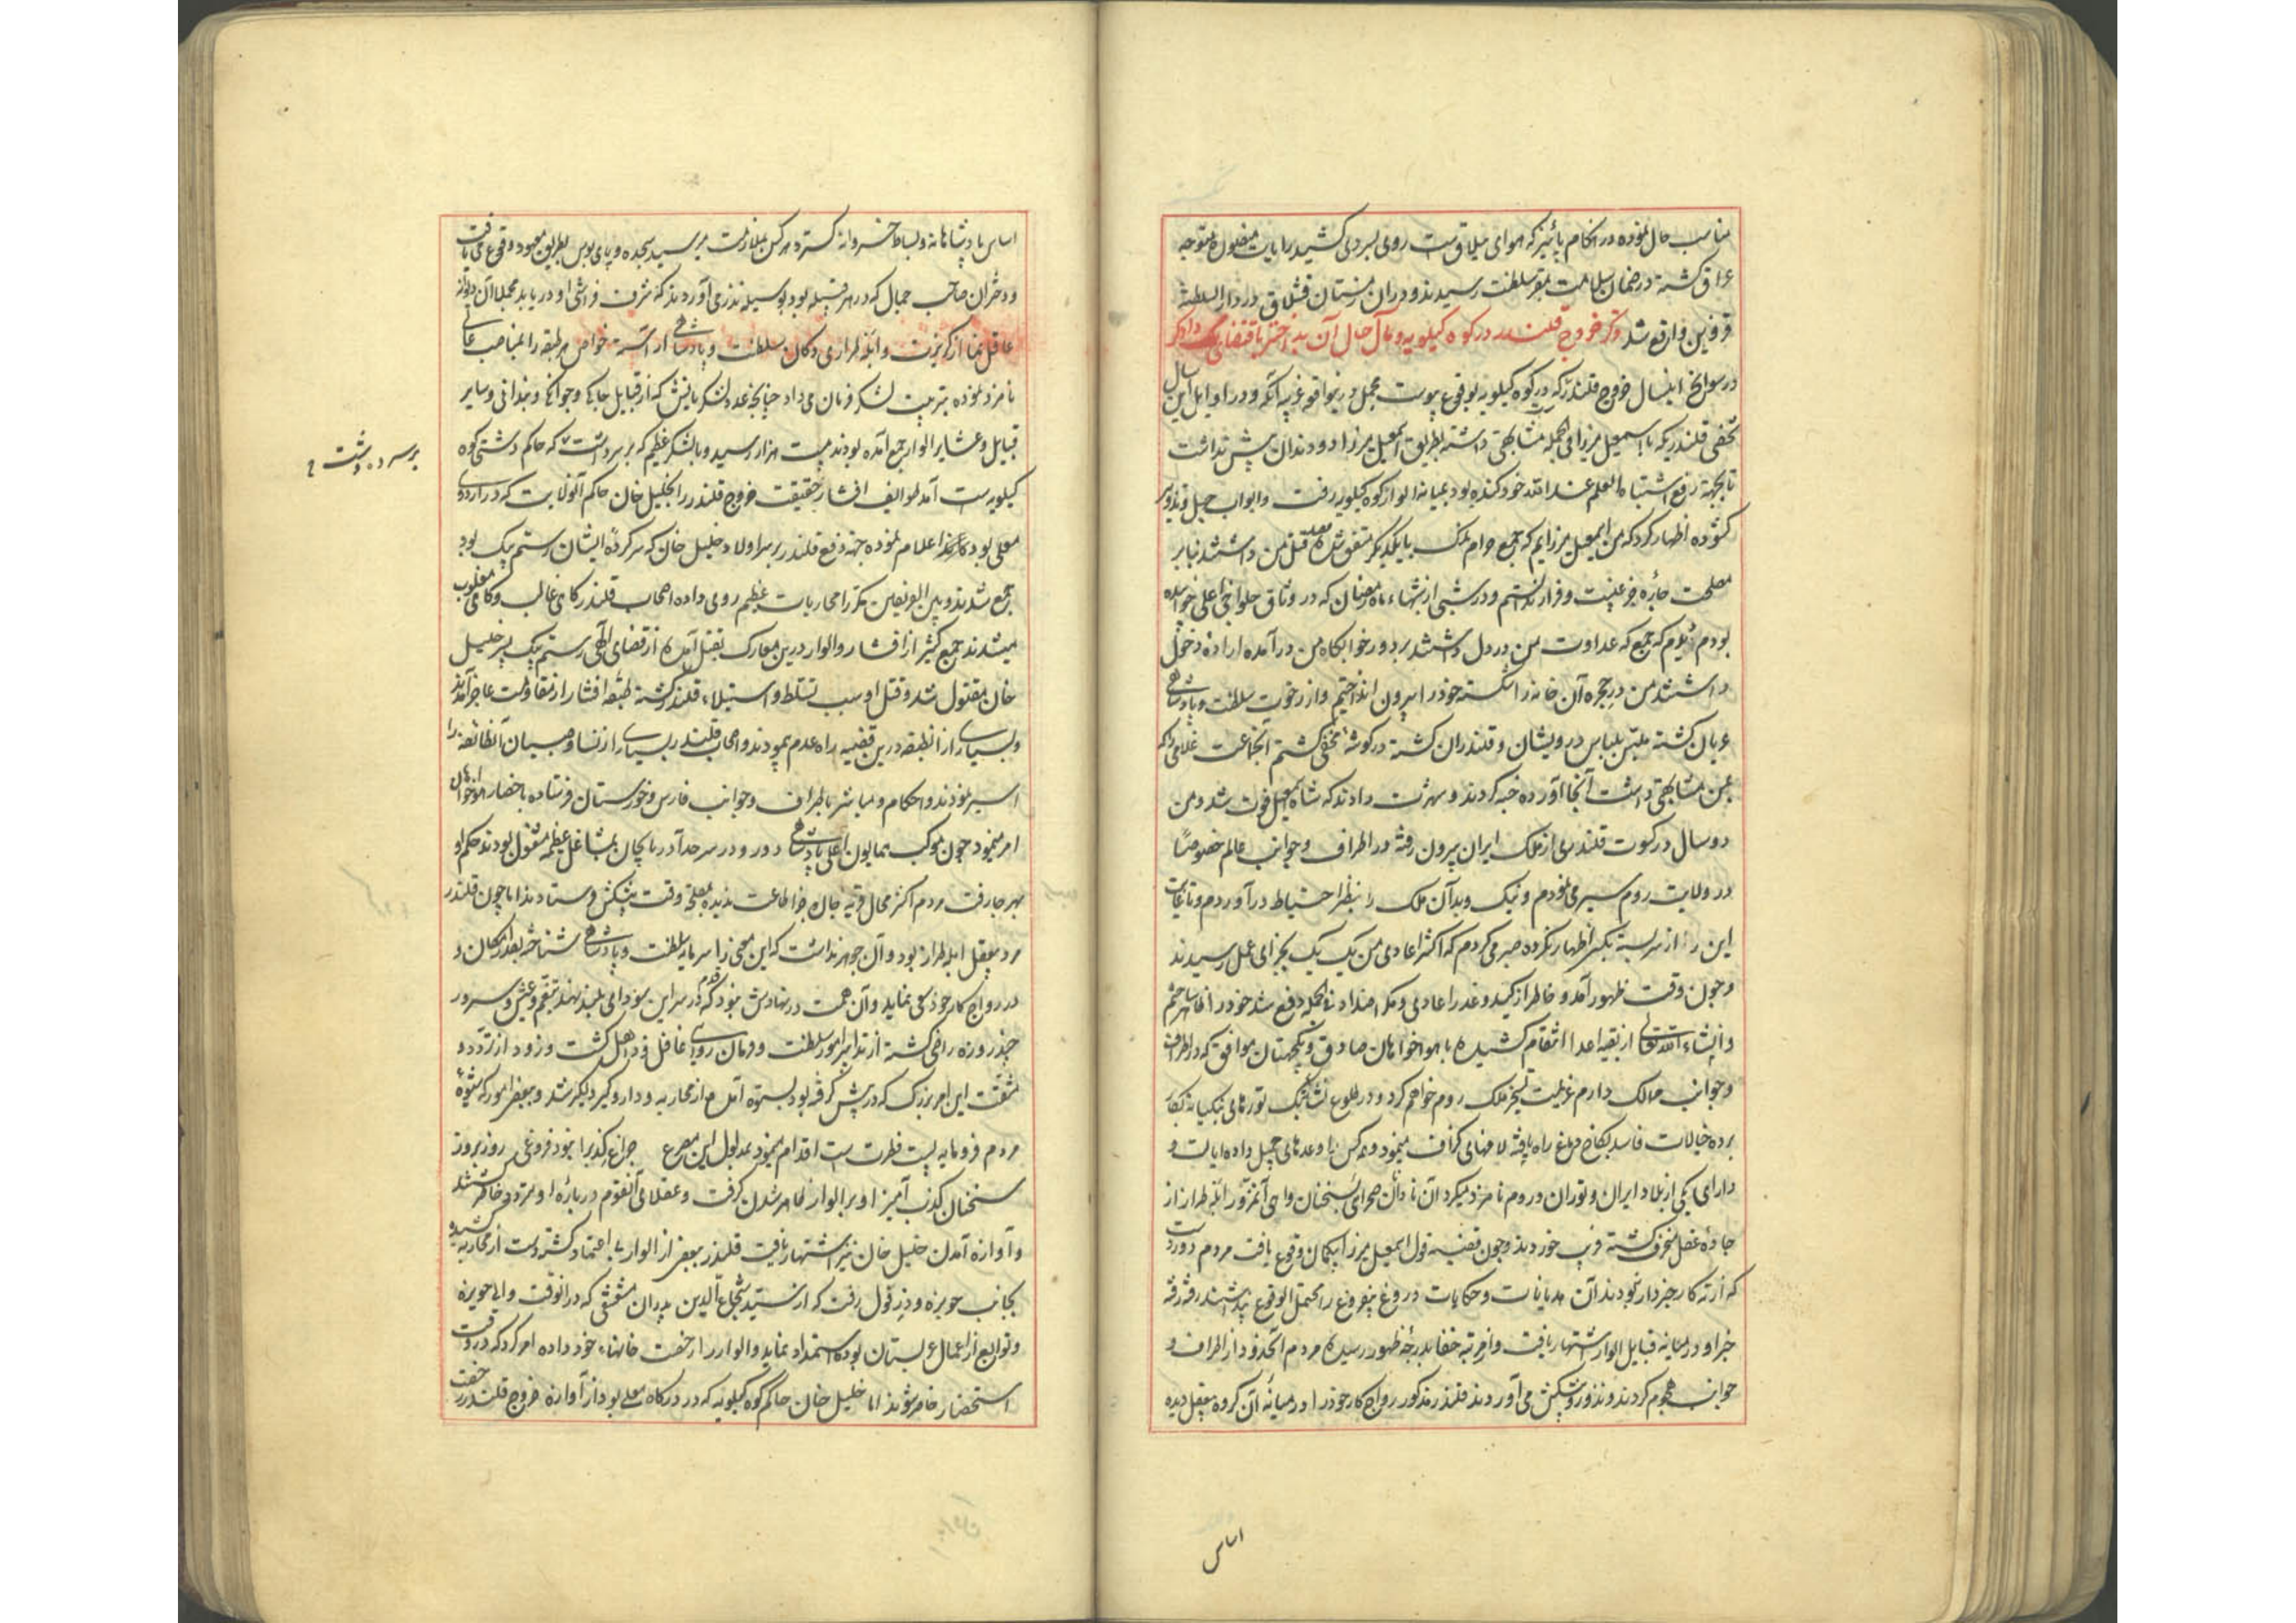 مناسب حال نموده در هنگام پائیز که هوای ییلاق ست روی بسردی کشید رایات منصوره متوجه
عراق گشته در ضمان سلامت بمقر سلطنت رسیدند و در آن زمستان قشلاق در دار السلطنه
قزوین واقع شد ذکر خروج قلندر در کوه کیلویه و مآل حال آن بد اختر باقتضای
در سوانح اینسال خروج قلندرست که در کوه کیلویه بوقوع پیوست مجمل درین واقعه غریبه آنکه در اوایل این سال
شخصی قلندر که با اسمعیل میرزا فی الجمله مشابهتی داشته بطریق اسمعیل میرزا دو دندان پیش نداشت
تا بجهة رفع اشتباه العلم عند الله خود کنده بود بمیانه الوار کوه کیلویه رفت و ابواب حیل و تزویر
کشوده اظهار کرد که من اسمعیل میرزایم که جمع حرام نمک با یکدیگر متفق شده قصد قتل من داشتند بنابر
مصلحت چاره جز غیبت و فرار نداشتم و در شبی از شبهاء ماه رمضان که در وثاق حلواچی اعلی خوابیده
بودم دیدم که جمع که عداوت من در دل داشتند بر دور خوابگاه من در آمده اراده دخول
داشتند من دریچه آن خانه را شکسته خود را بیرون انداختم و از رخوت سلطنت و پادشاهی
عریان گشته ملبس بلباس درویشان و قلندران گشته در گوشه مخفی گشتم آنجماعت غلامی را که
بمن مشابهتی داشت آنجا آورده خبه کردند و شهرت دادند که شاه اسمعیل فوت شد و من
دو سال در کسوت قلندری از ملک ایران بیرون رفته در اطراف و جوانب عالم خصوصا
در ولایت روم سیر می نمودم و نیک و بد آن ملک را بنظر احتیاط در آوردم و تا غایت
این راز سربسته بکس اظهار نکرده صبر می کردم که اکثر اعادی من یک یک بجزای عمل رسیدند
و چون وقت ظهور آمد و خاطر از کید و غدر اعادی و مکر اضداد فی الجمله دفع شد خود را ظاهر ساختم
و انشاء الله تعالی از بقیه اعدا انتقام کشیده با هواخواهان صادق و یکجهتان موافق که در اطراف
و جوانب ممالک دارم عزیمت تسخیر ملک روم خواهم کرد و در طلوع نشاء بنک توره های بنکیانه بکار
برده خیالات فاسد بکاخ دماغ راه یافته لافهای گزاف میزد و هر کس را وعدهای جمیل داده ایالت و
دارای یکی از بلاد ایران و توران و روم نامزد میکرد آن نادانان صحرائی بسخنان واهی آن مزور ابله طراز از
جاده عقل منحرف گشته فریب خوردند و چون قضیه فوت اسمعیل میرزا بگمان وقوع یافت مردم دور دست
که از ته کار خبردار نبودند آن هذیانات و حکایات دروغ بیفروغ را محتمل الوقوع پنداشتند رفته رفته
خبر او در میانه قبایل الوار اشتهار یافت و از مرتبه خفا بدرجه ظهور رسیده مردم آنحدود از اطراف و
جوانب هجوم کردند و نذور و پیشکش می آوردند قلندر مذکور رواج کار خود را در میانه آن گروه بیعقل دیده
اساس
اساس پادشاهانه و بساط خسروانه گسترد هر کس بملازمت میرسید سجده و پای بوس بطریق معهود وقوع می یافت
و دختران صاحب جمال که در هر قبیله بود بوسیله نذر می آوردند که شرف فراش او دریابد مجملا آن دیوانه
عاقل نما از گریزت و ابله طراری دکان سلطنت و پادشاهی آراسته خواص هر طبقه را بمناصب عالی
نامزد نموده بتربیت لشکر فرمان می داد چنانچه عدد لشکریانش که از قبایل جاکی و جوانکی و بندانی و سایر
قبایل و عشایر الوار جمع آمده بودند به بیست هزار رسید و با لشکر عظیم که بر سر دشت که حاکم دشتی کوه
کیلویه ست آمد طوایف افشار حقیقت خروج قلندر را بخلیل خان حاکم آنولایت که در اردوی
معلی بود اعلام نموده جهة دفع قلندر بر سر اولاد خلیل خان که سرکرده ایشان رستم بیک بود
جمع شدند و بین الفریقین مکررا محاربات عظیم روی داده اصحاب قلندر گاهی غالب و گاهی مغلوب
میشدند جمع کثیر از افشار و الوار درین معارک بقتل آمده از قضای الهی رستم بیک پسر خلیل
خان مقتول شد و قتل او سبب تسلط و استیلاء قلندر گشته طبقه افشار از مقاومت عاجز آمدند
و بسیاری از آنطبقه درین قضیه راه عدم پیمودند و اصحاب قلندر بسیاری از نسا و صبیان آنطائفه را
اسیر نمودند و احکام و مباشر باطراف و جوانب فارس و خوزستان فرستاده باحضار هواخواهان
امر میمود چون موکب همایون اعلی پادشاهی دور و در سرحد آذربایجان بمشاغل عظیمه مشغول بودند حکم او
بهر جا رفت مردم اکثر محال قریه چاره جز اطاعت ندیده بمصلحة وقت پیشکش فرستادند اما چون قلندر
مرد بیعقل ابله طراز بود و آن جوهر نداشت که این معنی را سرمایه سلطنت و پادشاهی شناخته بقدر امکان و
در رواج کار خود سعی نماید و آن همت در نهادش نبود که قدم در سر این سودای بلند نهد بتنعم و عیش و سرور
چند روزه راضی گشته از تدابیر امور سلطنت و فرمان روایی غافل و ذاهل گشت و زود از تردد و
مشقت این امر بزرگ که در پیش گرفته بود بستوه آمد و از محاربه و دار و گیر دلگیر شد و ببعض امور که شیوه
مردم فرومایه پست فطرت ست اقدام مینمود بمدلول این مصرع چراغ کذب را نبود فروغی روز بروز
سخنان کذب آمیز او بر الوار ظاهر شدن گرفت و عقلای آنقوم درباره او متردد خاطر شدند
و آوازه آمدن خلیل خان نیز اشتهار یافت قلندر ببعض از الوار بی اعتماد گشته دست از محاربه کشیده
بجانب حویزه و دزفول رفت که از سید شجاع الدین بدران مشعشعی که در آنوقت والی حویزه
و توابع از اعمال عربستان بود استمداد نماید و الوار را رخصت خانهاء خود داده امر کرد که در وقت
استحضار حاضر شوند اما خلیل خان حاکم کوه کیلویه که در درگاه معلی بود از آوازه خروج قلندر رخصت
بر سر ده دشت